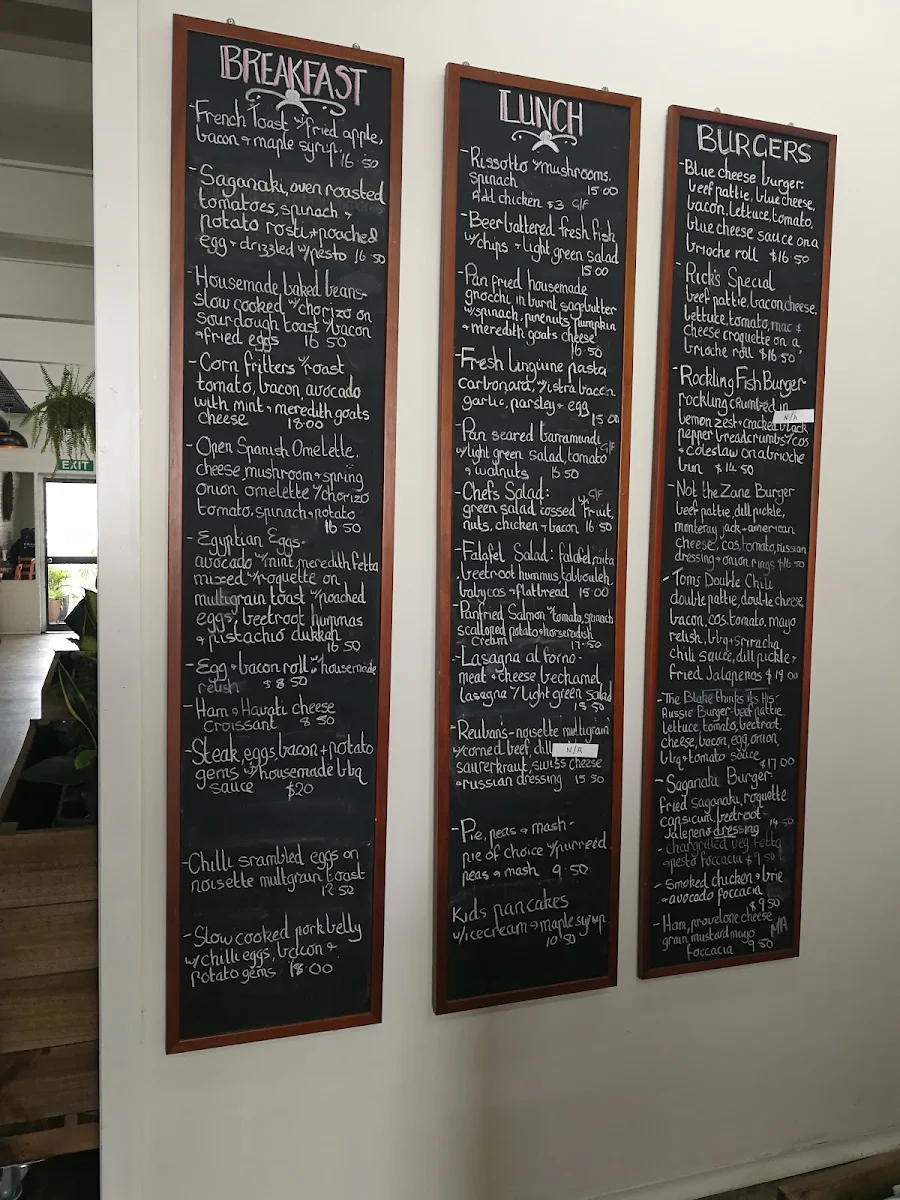 BREAKFAST
French Toast w/fried apple,
bacon + maple syrup. 16.50
- Saganaki, oven roasted
tomatoes, spinach +
potato rosti + poached
egg + drizzled w/pesto 16.50
- Housemade baked beans-
slow cooked w/chorizo on
sourdough toast w/bacon
+ fried eggs 16.50
- Corn fritters w/roast
tomato, bacon, avocado
with mint + meredith goats
cheese 18.00
- Open Spanish Omelette,
cheese, mushroom + spring
onion omelette w/chorizo
tomato, spinach + potato
16.50
- Egyptian Eggs-
avocado w/mint, meredith fetta
mixed w/roquette on
multigrain toast w/poached
eggs, beetroot hummas
+ pistachio dukkah
16.50
- Egg + bacon roll w/housemade
relish $8.50
- Ham + Havati cheese
Croissant 8.50
- Steak, eggs, bacon + potato
gems w/housemade bbq
sauce $20
- Chilli srambled eggs on
noisette multgrain toast
12.50
- Slow cooked pork belly
w/chilli eggs, bacon +
potato gems 18.00
LUNCH
- Rissotto w/mushrooms,
spinach 15.00
Add chicken $3 G/F
- Beer battered fresh fish
w/chips + light green salad
15.00
- Pan fried housemade
gnocchi, in burnt sage butter
w/spinach, pinenuts, pumpkin
+ meredith goats cheese
16.50
- Fresh linguine pasta
carbonara, w/istra bacon
garlic, parsley + egg
15.00
- Pan seared barramundi G/F
w/light green salad, tomato
+ walnuts 16.50
- Chefs Salad: G/F
green salad tossed w/fruit,
nuts, chicken + bacon 16.50
- Falafel Salad: falafel, fruita
, beetroot hummus, tabbouleh
baby cos + flatbread 15.00
- Panfried Salmon w/tomato, spinach
scalloped potato + horseradish
cream 17.50
- Lasagna al forno-
meat + cheese bechamel
lasagna w/light green salad
15.50
- Reubans- noisette multigrain
w/corned beef, dill N/A
saurerkraut, swiss cheese
+ russian dressing 15.50
- Pie, peas + mash-
pie of choice w/purreed
peas + mash 9.50
Kids pancakes
w/icecream + maple syrup
10.50
BURGERS
- Blue cheese burger:
beef pattie, blue cheese,
bacon, lettuce, tomato,
blue cheese sauce on a
brioche roll $16.50
- Rick's Special
beef pattie, bacon, cheese,
lettuce, tomato, mac +
cheese croquette on a
brioche roll $16.50
- Rockling Fish Burger
rockling crumbed in
N/A
lemon zest + cracked black
pepper breadcrumbs w/cos
+ coleslaw on a brioche
bun $14.50
- Not the Zane Burger
beef pattie, dill pickle,
monteray jack + american
cheese, cos, tomato, russian
dressing + onion rings $16.50
- Toms Double Chili
double pattie, double cheese,
bacon, cos, tomato, mayo
relish, bbq + sriracha
chili sauce, dill pickle +
fried Jalapenos $19.00
- The Blake thinks its His-
Aussie Burger- beef pattie
lettuce, tomato, beetroot,
cheese, bacon, egg, onion,
bbq + tomato sauce
$17.00
- Saganaki Burger-
fried saganaki, roquette
capsicum, beetroot-
Jalepeno dressing 14.50
- chargrilled veg, fetta
+ pesto foccacia $9.50
- Smoked chicken + brie
+ avocado foccacia
$9.50
- Ham, provelone cheese
grain mustard mayo MA
foccacia 9.50
EXIT